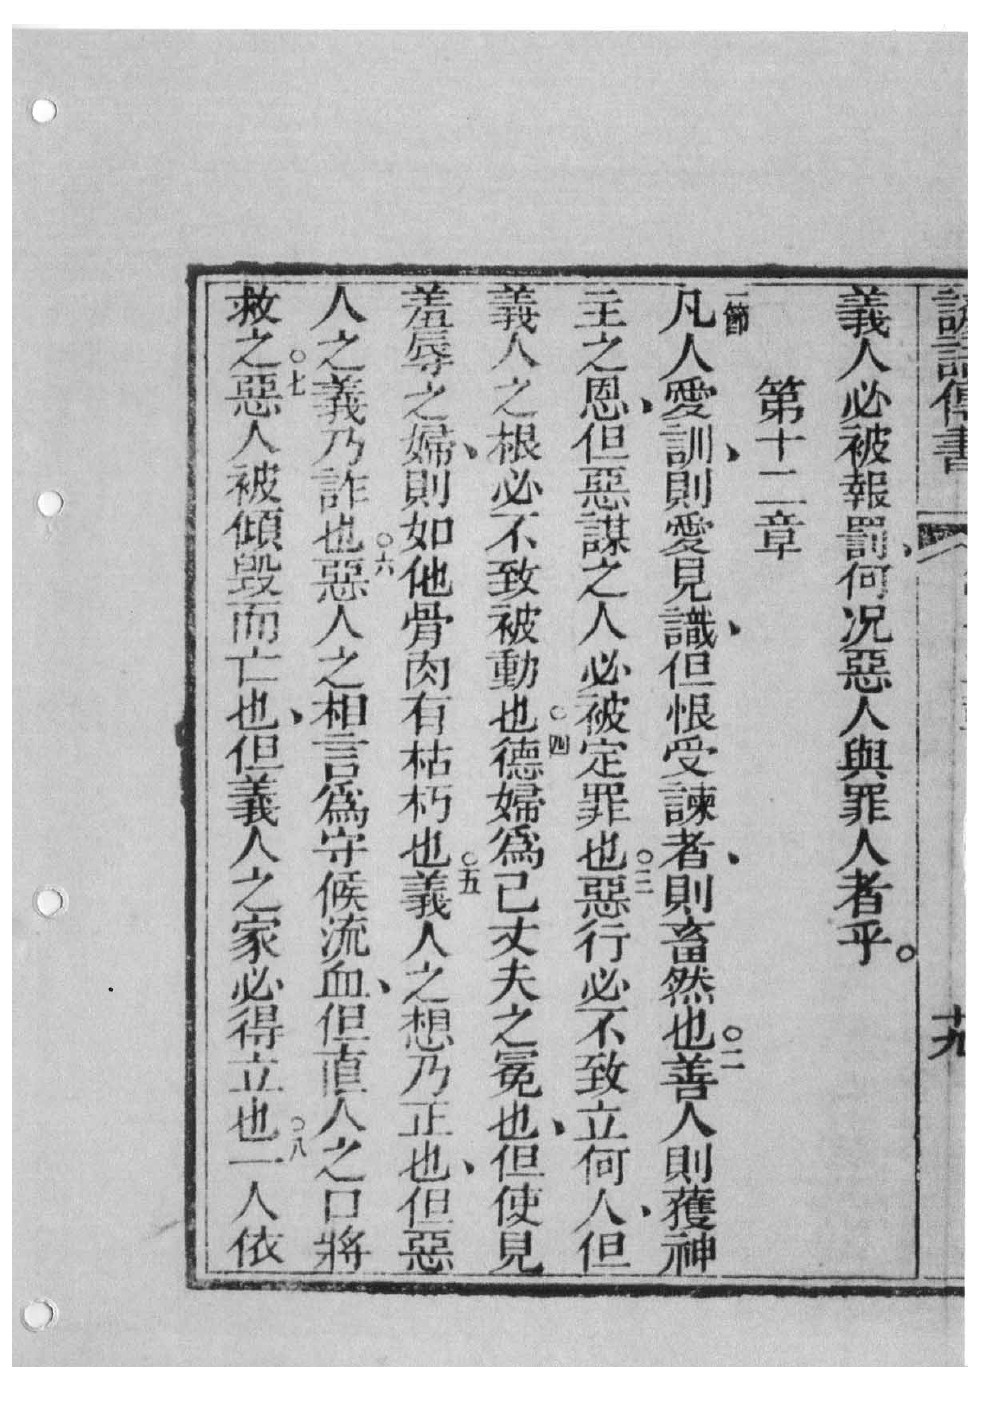 義人必被報罰、何况惡人與罪人者乎。
第十二章
一節凡人愛訓、則愛見識、但恨受諫者、則畜然也○二善人則獲神
主之恩、但惡謀之人必被定罪也○三惡行必不致立何人、但
義人之根必不致被動也○四德婦爲己丈夫之冕也、但使見
羞辱之婦、則如他骨肉有枯朽也○五義人之想乃正也、但惡
人之義乃詐也○六惡人之相言爲守候流血、但直人之口將
救之○七惡人被傾毀而亡也、但義人之家必得立也○八一人依